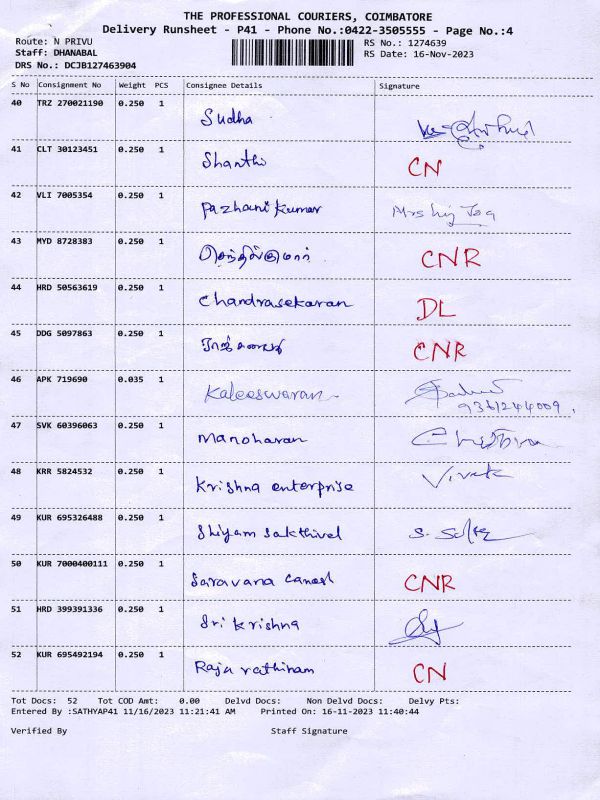 THE PROFESSIONAL COURIERS, COIMBATORE
Delivery Runsheet - P41 - Phone No.:0422-3505555 - Page No.:4
Route: N PRIVU RS No.: 1274639
Staff: DHANABAL RS Date: 16-Nov-2023
DRS No.: DCJB127463904
S No Consignment No Weight PCS Consignee Details Signature
40 TRZ 270021190 0.250 1 Sudha
41 CLT 30123451 0.250 1 Shanthi CN
42 VLI 7005354 0.250 1 Pazhani Kumar
43 MYD 8728383 0.250 1 செந்தில்குமார் CNR
44 HRD 50563619 0.250 1 Chandrasekaran DL
45 DDG 5097863 0.250 1 CNR
46 APK 719690 0.035 1 Kaleeswaran
9361244009.
47 SVK 60396063 0.250 1 Manoharan
48 KRR 5824532 0.250 1 Krishna enterprise Vivek
49 KUR 695326488 0.250 1 Shiyam Sakthivel
50 KUR 7000400111 0.250 1 Saravana Ganesh CNR
51 HRD 399391336 0.250 1 Sri Krishna
52 KUR 695492194 0.250 1 Raja rathinam CN
Tot Docs: 52 Tot COD Amt: 0.00 Delvd Docs: Non Delvd Docs: Delvy Pts:
Entered By :SATHYAP41 11/16/2023 11:21:41 AM Printed On: 16-11-2023 11:40:44
Verified By Staff Signature